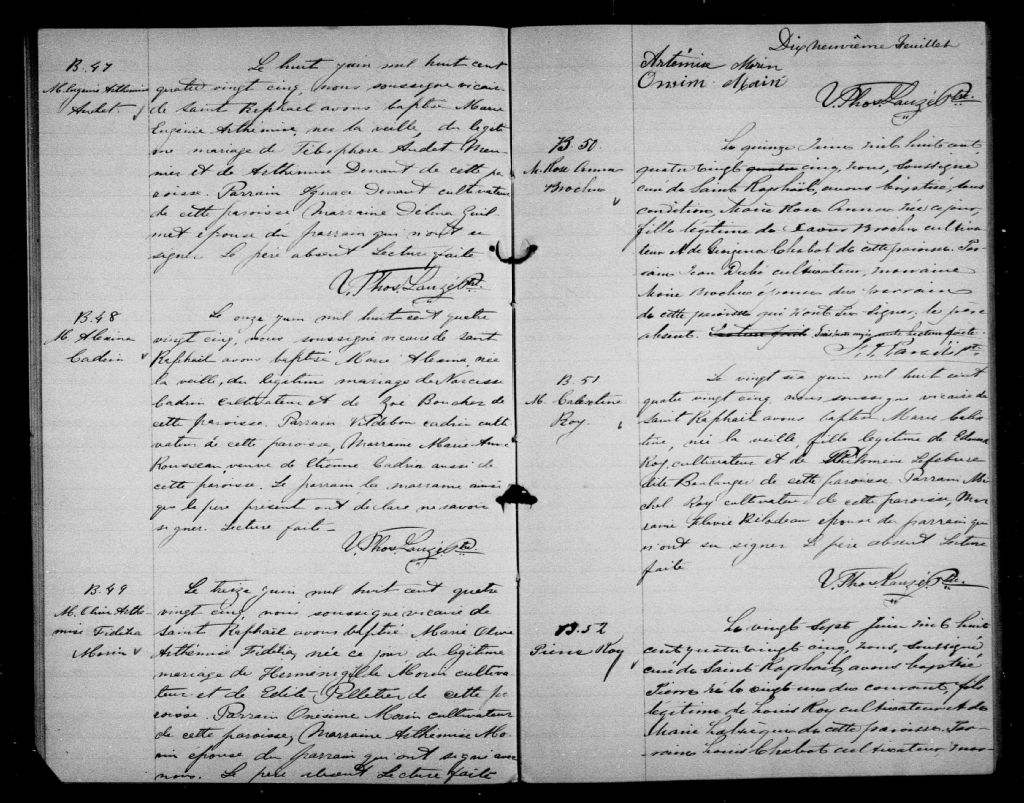 B.47
M. Eugenie Arthemise
Audet
Le huit juin mil huit cent
quatre vingt cinq, nous soussigne vicaire
de Saint Raphael avons baptise Marie
Eugénie Arthemise, nee la veille, du legiti
me mariage de Télesphore Audet Meu
nier et de Arthemise Denaut de cette pa
roisse. Parrain Ignace Denaut cultivateur
de cette paroisse, Marraine Délina Guil
met epouse du parrain qui n'ont su
signer. Le père absent. Lecture faite
V. Thos. Lauzé Ptr.
B.48
M. Alexina
Cadrin
Le onze juin mil huit cent quatre
vingt cinq, nous soussigne vicaire de saint
Raphael avons baptisé Marie Alexina née
la veille, du légitime mariage de Narcisse
Cadrin cultivateur et de Zoé Boucher de
cette paroisse. Parrain Vildebon Cadrin culti
vateur de cette paroisse, Marraine Marie Anne
Rousseau, veuve de Etienne Cadrin aussi de
cette paroisse. Le parrain la marraine ainsi
que le pere présent ont declare ne savoir
signer. Lecture faite -
V. Thos. Lauzé Ptr
B.49
M. Olive Arthe-
mise Fidélia
Morin
Le treize juin mil huit cent quatre
vingt cinq, nous soussigne vicaire de
Saint Raphael avons baptisé Marie Olive
Arthémise Fidélia, née ce jour du legitime
mariage de Herménégille Morin cultiva
teur et de Edith Pelletier de cette pa
roisse. Parrain Onésime Morin cultivateur
de cette paroisse, Marraine Arthémise Mo
rin epouse du parrain qui ont signe avec
nous. Le père absent Lecture faite
Dix neuvième Feuillet
Artémise Morin
Onésim Morin
V. Thos. Lauzé Ptr.
B.50.
M. Rose Anna
Brochu
Le quinze Juin mil huit cent
quatre vingt quatre cinq, nous, soussigné
curé de Saint Raphaël, avons baptisé, sous
condition, Marie Rose Anna née ce jour,
fille légitime de Xavier Brochu cultiva
teur et de Georgina Chabot de cette paroisse. Par-
rain Jean Dubé cultivateur, marraine
Marie Brochu épouse du parrain
de cette paroisse qui n'ont su signer, le père
absent. Lecture faite.
B.51
M. Celestine
Roy.
Le vingt six juin mil huit cent
quatre vingt cinq, nous soussigne vicaire de
Saint Raphael avons baptise Marie Céles
tine, née la veille, fille legitime de Edouard
Roy, cultivateur et de Philomène Lefebvre
dite Boulanger de cette paroisse. Parrain Mi
chel Roy cultivateur de cette paroisse, Mar
raine Flavie Bilodeau epouse du parrain qui
n'ont su signer Le père absent Lecture
faite
V. Thos. Lauzé, Ptr.
B.52
Pierre Roy
Le vingt Sept Juin mil huit
cent quatre vingt cinq, nous, soussigné,
curé de Saint Raphaël, avons baptisé
Pierre né le vingt un du courant, fils
légitime de Louis Roy cultivateur et de
Marie Labrèque de cette paroisse. Par-
rain Louis Chabot cultivateur mar-